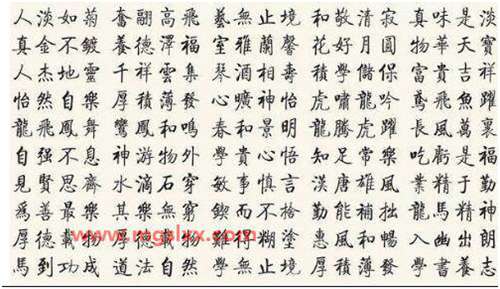 人淡如菊 奮翮高飛 藝無止境 和敬清寂 真味是淡
真金不鍍 養德澤福 室雅蘭馨 花好月圓 物華天寶
人杰地靈 千祥雲集 琴酒相壽 學儲保 富貴吉祥
怡然自樂 厚積薄發 曠神怡 虎嘯龍吟 鳶飛魚躍
龍飛鳳舞 鸞鳳和鳴 春和景明 龍騰虎躍 長風萬里
自强不息 神游物外 學貴心悟 知足常樂 吃虧是福
見賢思齊 水滴石穿 敏事慎言 漢唐雄風 業精于勤
爲善最樂 其樂無窮 鍥而不捨 勤能補拙 龍馬精神
厚德載物 難得糊塗 惠風和暢 入幽出朗
馬到功成 道法自然 學無止境 厚積薄發 學書養志